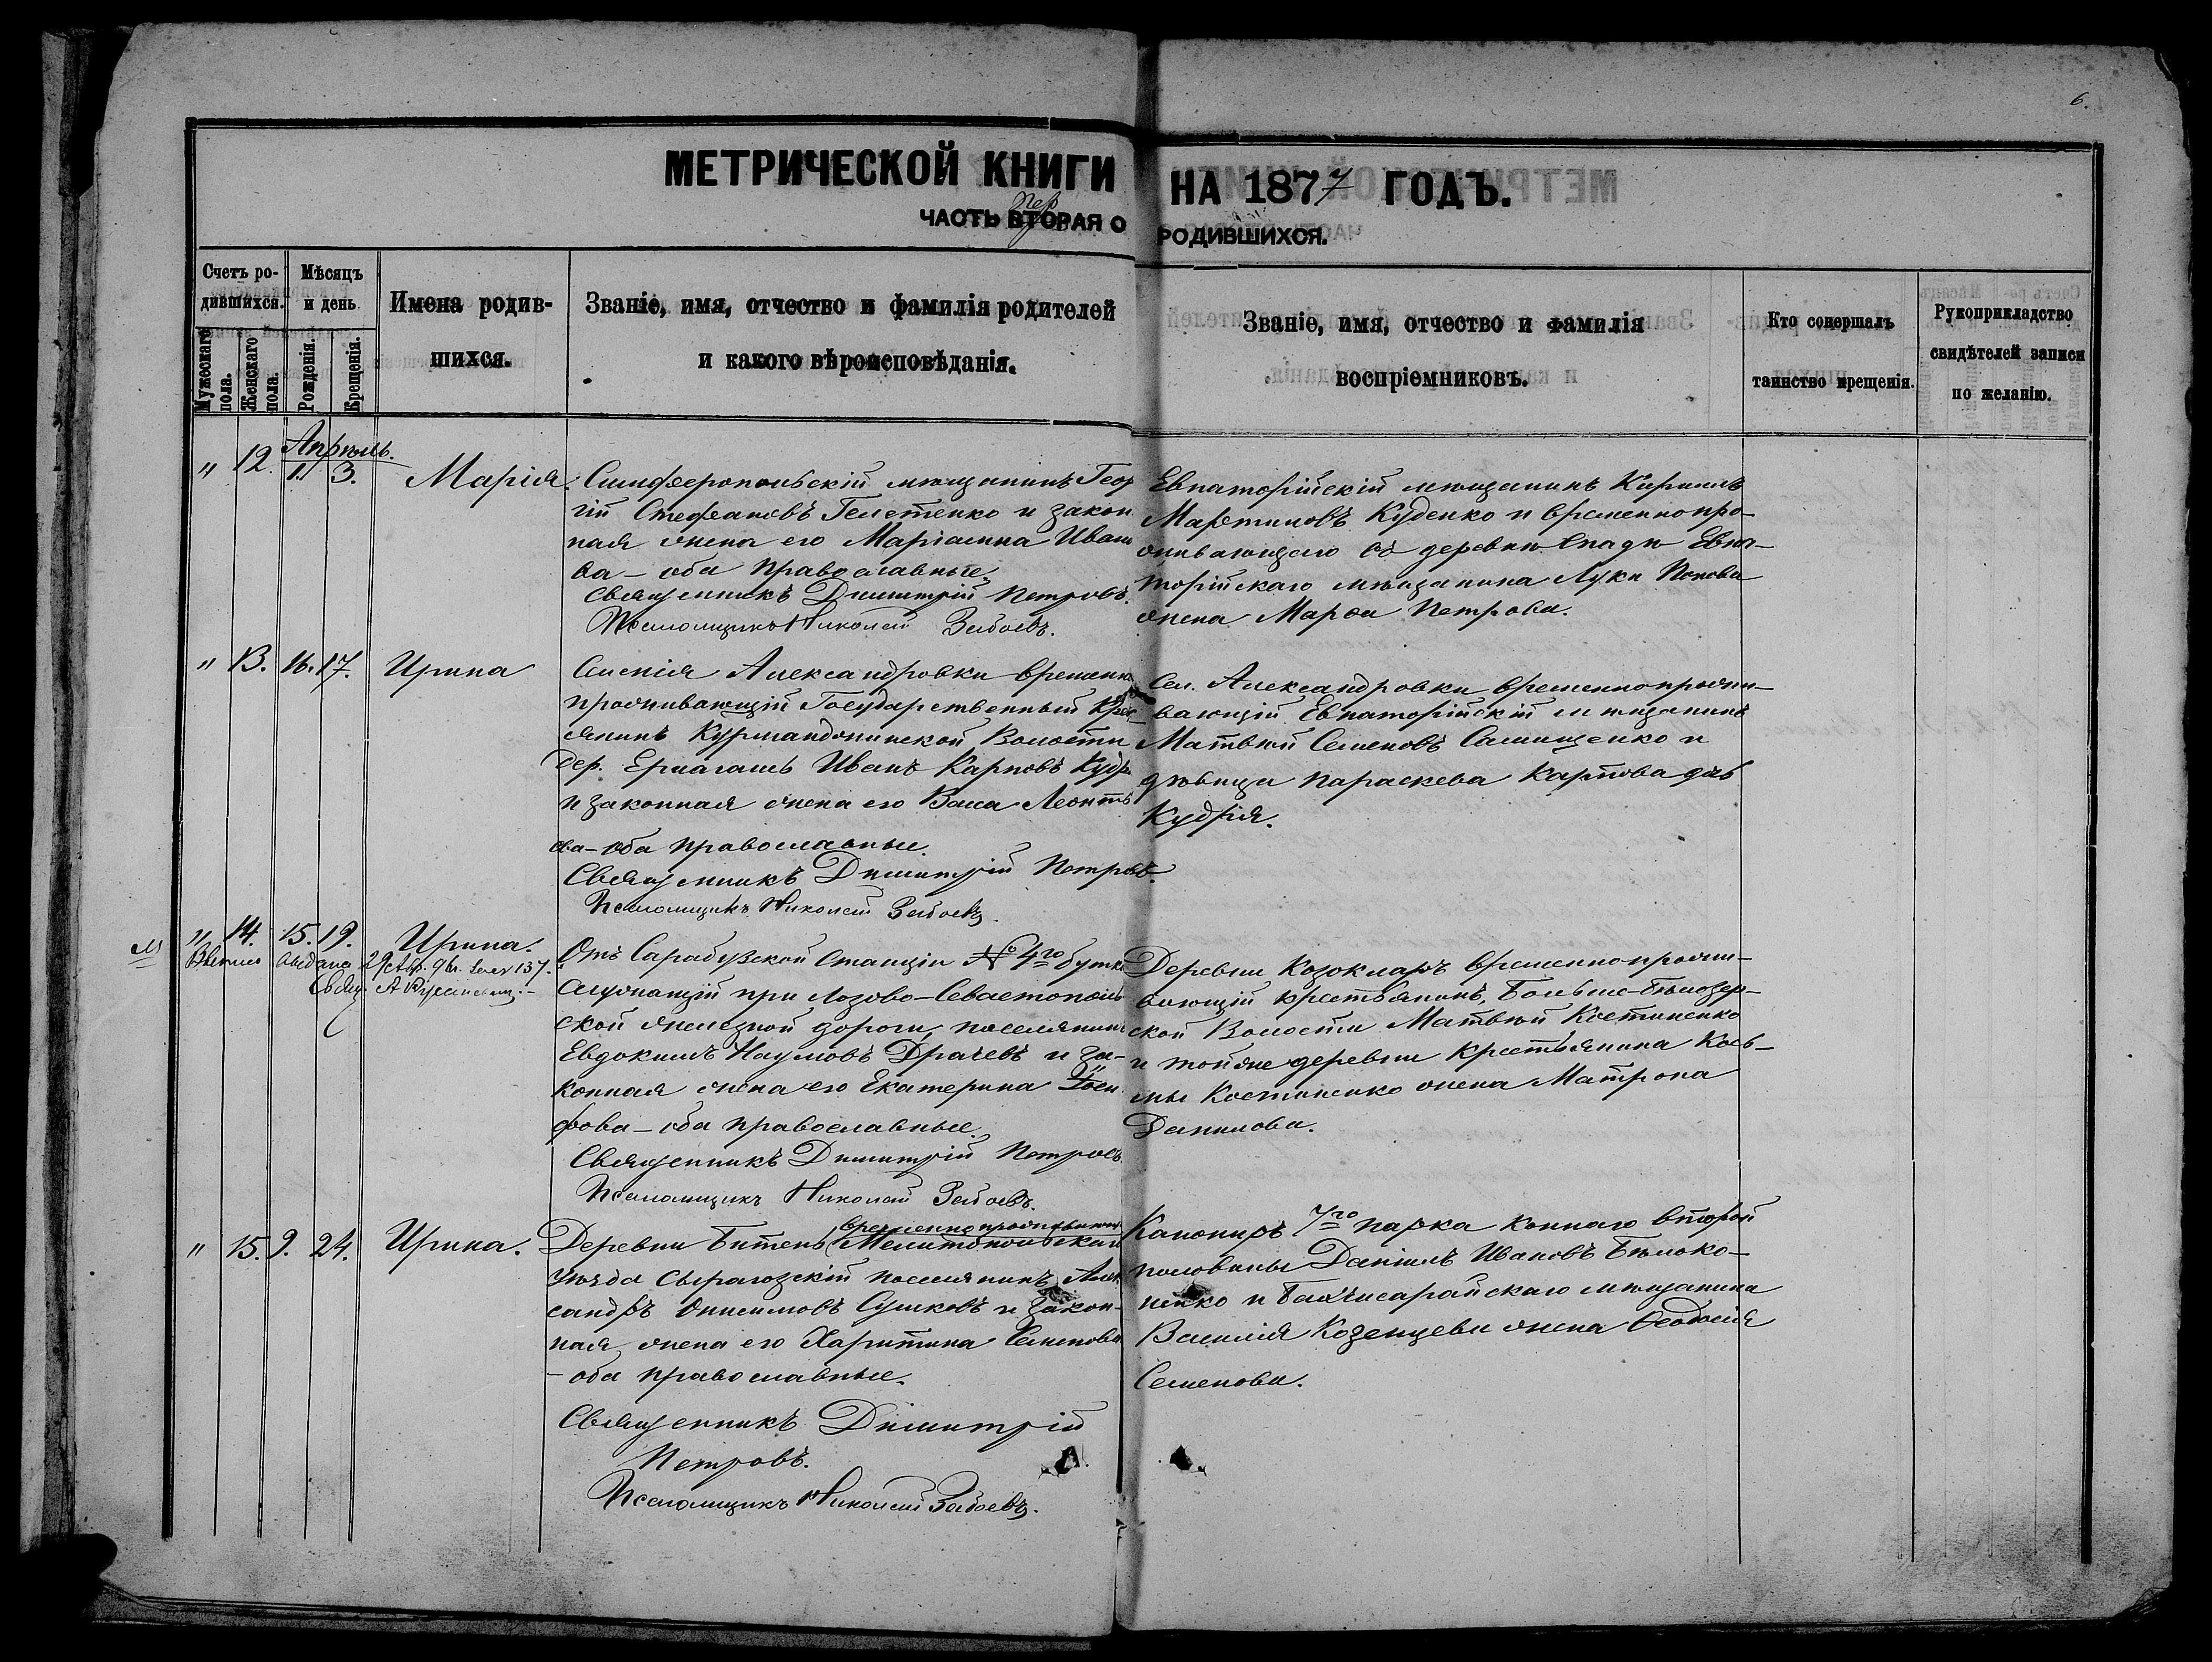 6.
МЕТРИЧЕСКОЙ КНИГИ НА 1877 ГОДЪ.
пер
ЧАСТЬ ВТОРАЯ О РОДИВШИХСЯ.
Счетъ ро-
дившихся.
Мужескаго пола.
Женскаго пола.
Мѣсяцъ
и день
Рожденія.
Крещенія.
Имена родив-
шихся.
Званіе, имя, отчество и фамилія родителей
и какого вѣроисповѣданія.
Званіе, имя, отчество и фамилія
воспріемниковъ.
Кто совершалъ
таинство крещенія.
Рукоприкладство
свидѣтелей записи
по желанію.
Апрѣль.
" 12. 1. 3. Марія.
Симферопольскій мѣщанинъ Геор
гій Стефановъ Гелетенко и закон
ная жена его Маріамна Иван
ва - оба православные.
Священникъ Димитрій Петровъ.
Псаломщикъ Николай
Евпаторійскій мѣщанинъ Кириллъ
Мартиновъ Куденко и временнопро-
живающаго въ деревни Евпа-
торійскаго мѣщанина Луки Попова
жена Марфа Петрова.
" 13. 16. 17. Ирина
Селенія Александровки временно
проживающій Государственный Крес
янинъ Курманджинской Волости
дер. Иванъ Карповъ Кудр
и законная жена его Васса Леонть
ева - оба православные.
Священникъ Димитрій Петровъ.
Псаломщикъ Николай
Сел. Александровки временнопрожи-
вающій Евпаторійскій мѣщанинъ
Матвѣй Семеновъ и
дѣвица Параскева Карпова дчь
Кудрія.
" 14. 15. 19. Ирина.
выдана
Свящ.
Отъ Сарабузской Станціи № 4го будки
Служащій при Лозово-Севастополь
ской желѣзной дороги, поселянинъ
Евдокимъ Наумовъ Драчевъ и за-
конная жена его Екатерина Іоси
фова - оба православные.
Священникъ Димитрій Петровъ.
Псаломщикъ Николай
Деревни временнопрожи-
вающій крестьянинъ, Больше-Бѣлозер-
ской Волости Матвѣй Костиненко
и тойже деревни крестьянина Кось-
мы Костиненко жена Матрона
Данилова.
" 15. 9. 24. Ирина.
временно проживающ
Деревни Битень Мелитопольскаго
уѣзда Сырагозскій поселянинъ Алек
сандръ Онисимовъ Сушковъ и закон-
ная жена его Харитина Семенова
- оба православные.
Священникъ Димитрій
Петровъ.
Псаломщикъ Николай
Канониръ 7го парка коннаго второй
половины Даніилъ Ивановъ Бѣлоко-
ненко и Бахчисарайскаго мѣщанина
Василія Козенцева жена Ѳеодосія
Семенова.